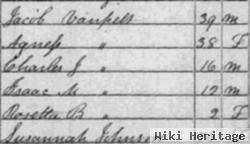 Jacob Vanpelt 39 m
Agness " 38 F
Charles J " 16 m
Isaac M " 12 m
Rosetta B " 2 F
Susannah Johns
Wiki Heritage